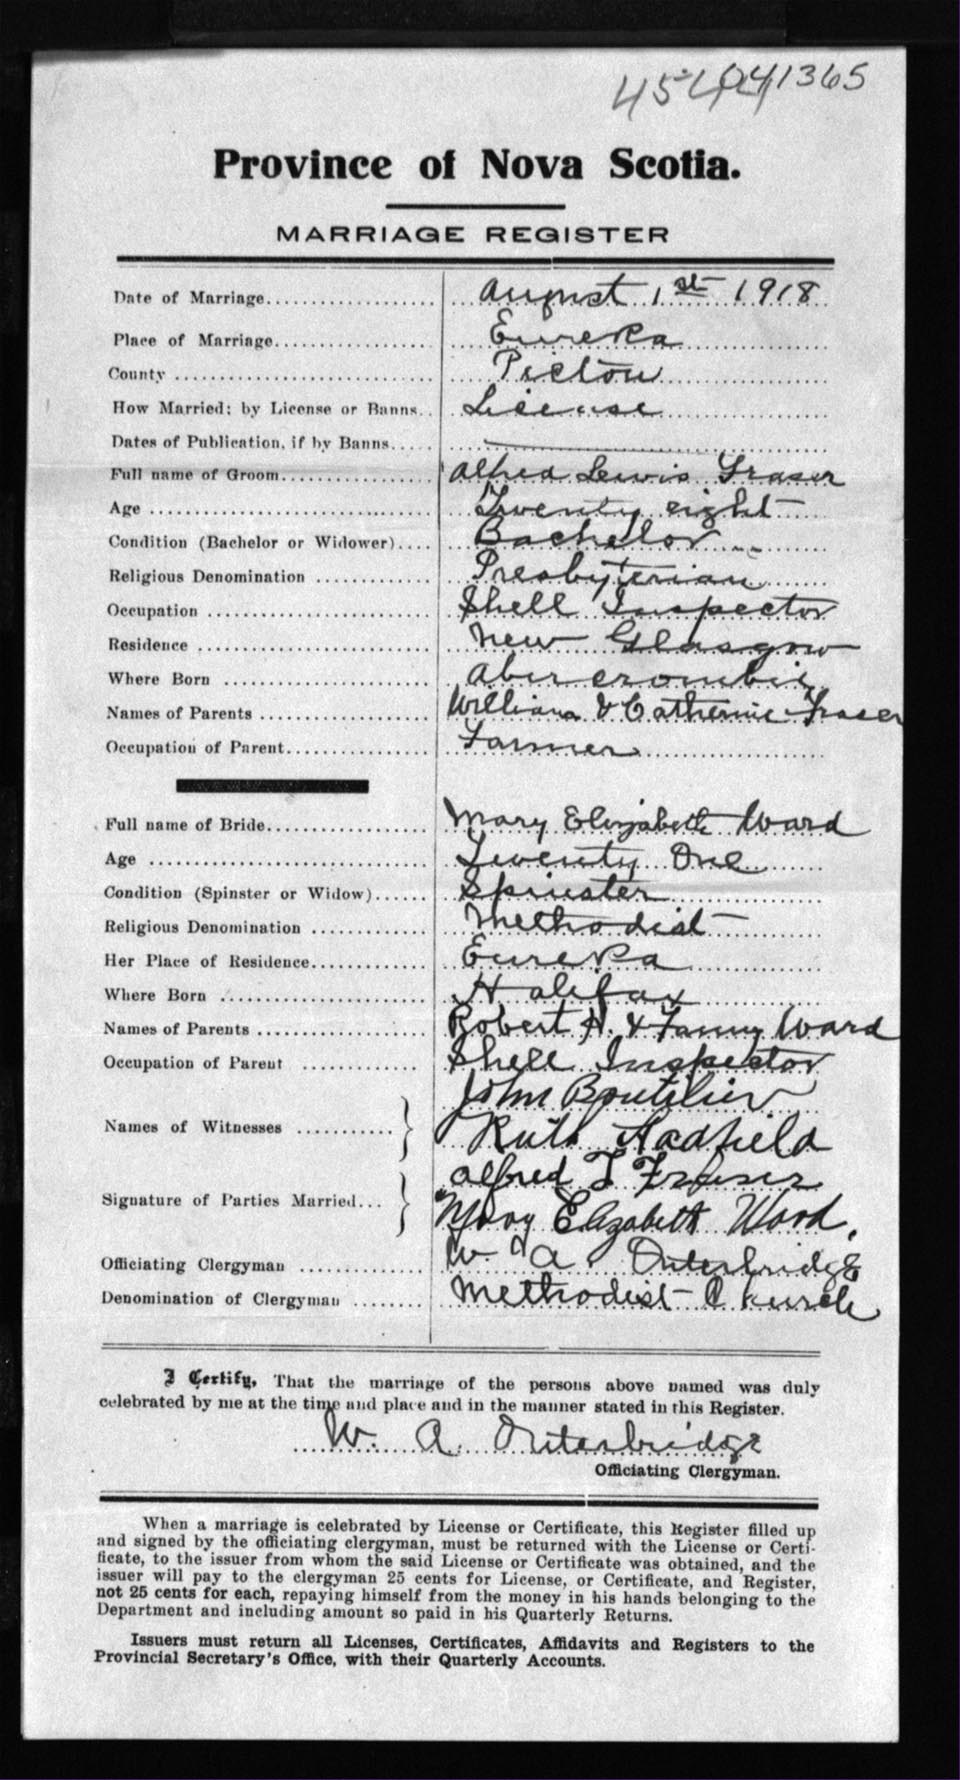 041365
Province of Nova Scotia.
MARRIAGE REGISTER
Date of Marriage.................... August 1st 1918
Place of Marriage................... Eureka
County .............................. Pictou
How Married: by License or Banns.. License
Dates of Publication, if by Banns.....
Full name of Groom................. Alfred Lewis Fraser
Age ................................. Twenty eight
Condition (Bachelor or Widower).... Bachelor
Religious Denomination ............. Presbyterian
Occupation .......................... Shell Inspector
Residence ........................... New Glasgow
Where Born ......................... Abercrombie
Names of Parents .................... William & Catherine Fraser
Occupation of Parent................ Farmer
Full name of Bride.................. Mary Elizabeth Ward
Age ................................. Twenty One
Condition (Spinster or Widow)...... Spinster
Religious Denomination ............. Methodist
Her Place of Residence.............. Eureka
Where Born ......................... Halifax
Names of Parents .................... Robert H. & Fanny Ward
Occupation of Parent ............... Shell Inspector
John Boutilier
Names of Witnesses ............ Ruth Hadfield
Alfred L Fraser
Signature of Parties Married... Mary Elizabeth Ward.
Officiating Clergyman .............. W A Outerbridge
Denomination of Clergyman ........ Methodist Church
I Certify, That the marriage of the persons above named was duly
celebrated by me at the time and place and in the manner stated in this Register.
W. A. Outerbridge
Officiating Clergyman.
When a marriage is celebrated by License or Certificate, this Register filled up
and signed by the officiating clergyman, must be returned with the License or Certi-
ficate, to the issuer from whom the said License or Certificate was obtained, and the
issuer will pay to the clergyman 25 cents for License, or Certificate, and Register,
not 25 cents for each, repaying himself from the money in his hands belonging to the
Department and including amount so paid in his Quarterly Returns.
Issuers must return all Licenses, Certificates, Affidavits and Registers to the
Provincial Secretary's Office, with their Quarterly Accounts.